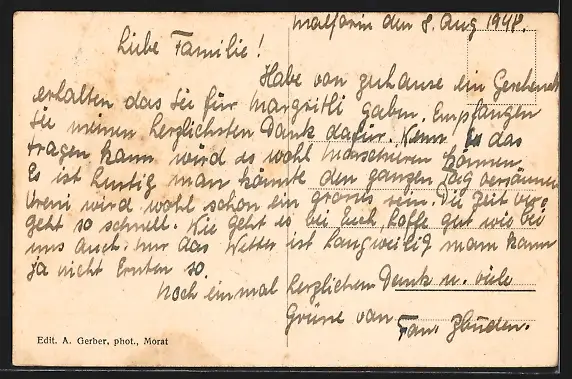 Malfarin den 8. Aug 1948.
Liebe Familie!
Habe von zuhause ein Geschenk
erhalten das Sie für Margritli gaben. Empfangen
Sie meinen herzlichsten Dank dafür. Wenn Es das
tragen kann wird es wohl marschieren können
Es ist lustig man könnte den ganzen Tag versäumen
Vreni wird wohl schon ein grosses sein. Die Zeit ver-
geht so schnell. Wie geht es bei Euch, hoffe gut wie bei
uns auch. nur das Wetter ist langweilig man kann
ja nicht Ernten so.
Noch einmal herzlichen Dank u. viele
Grüsse von Fam. Zbinden.
Edit. A. Gerber, phot., Morat